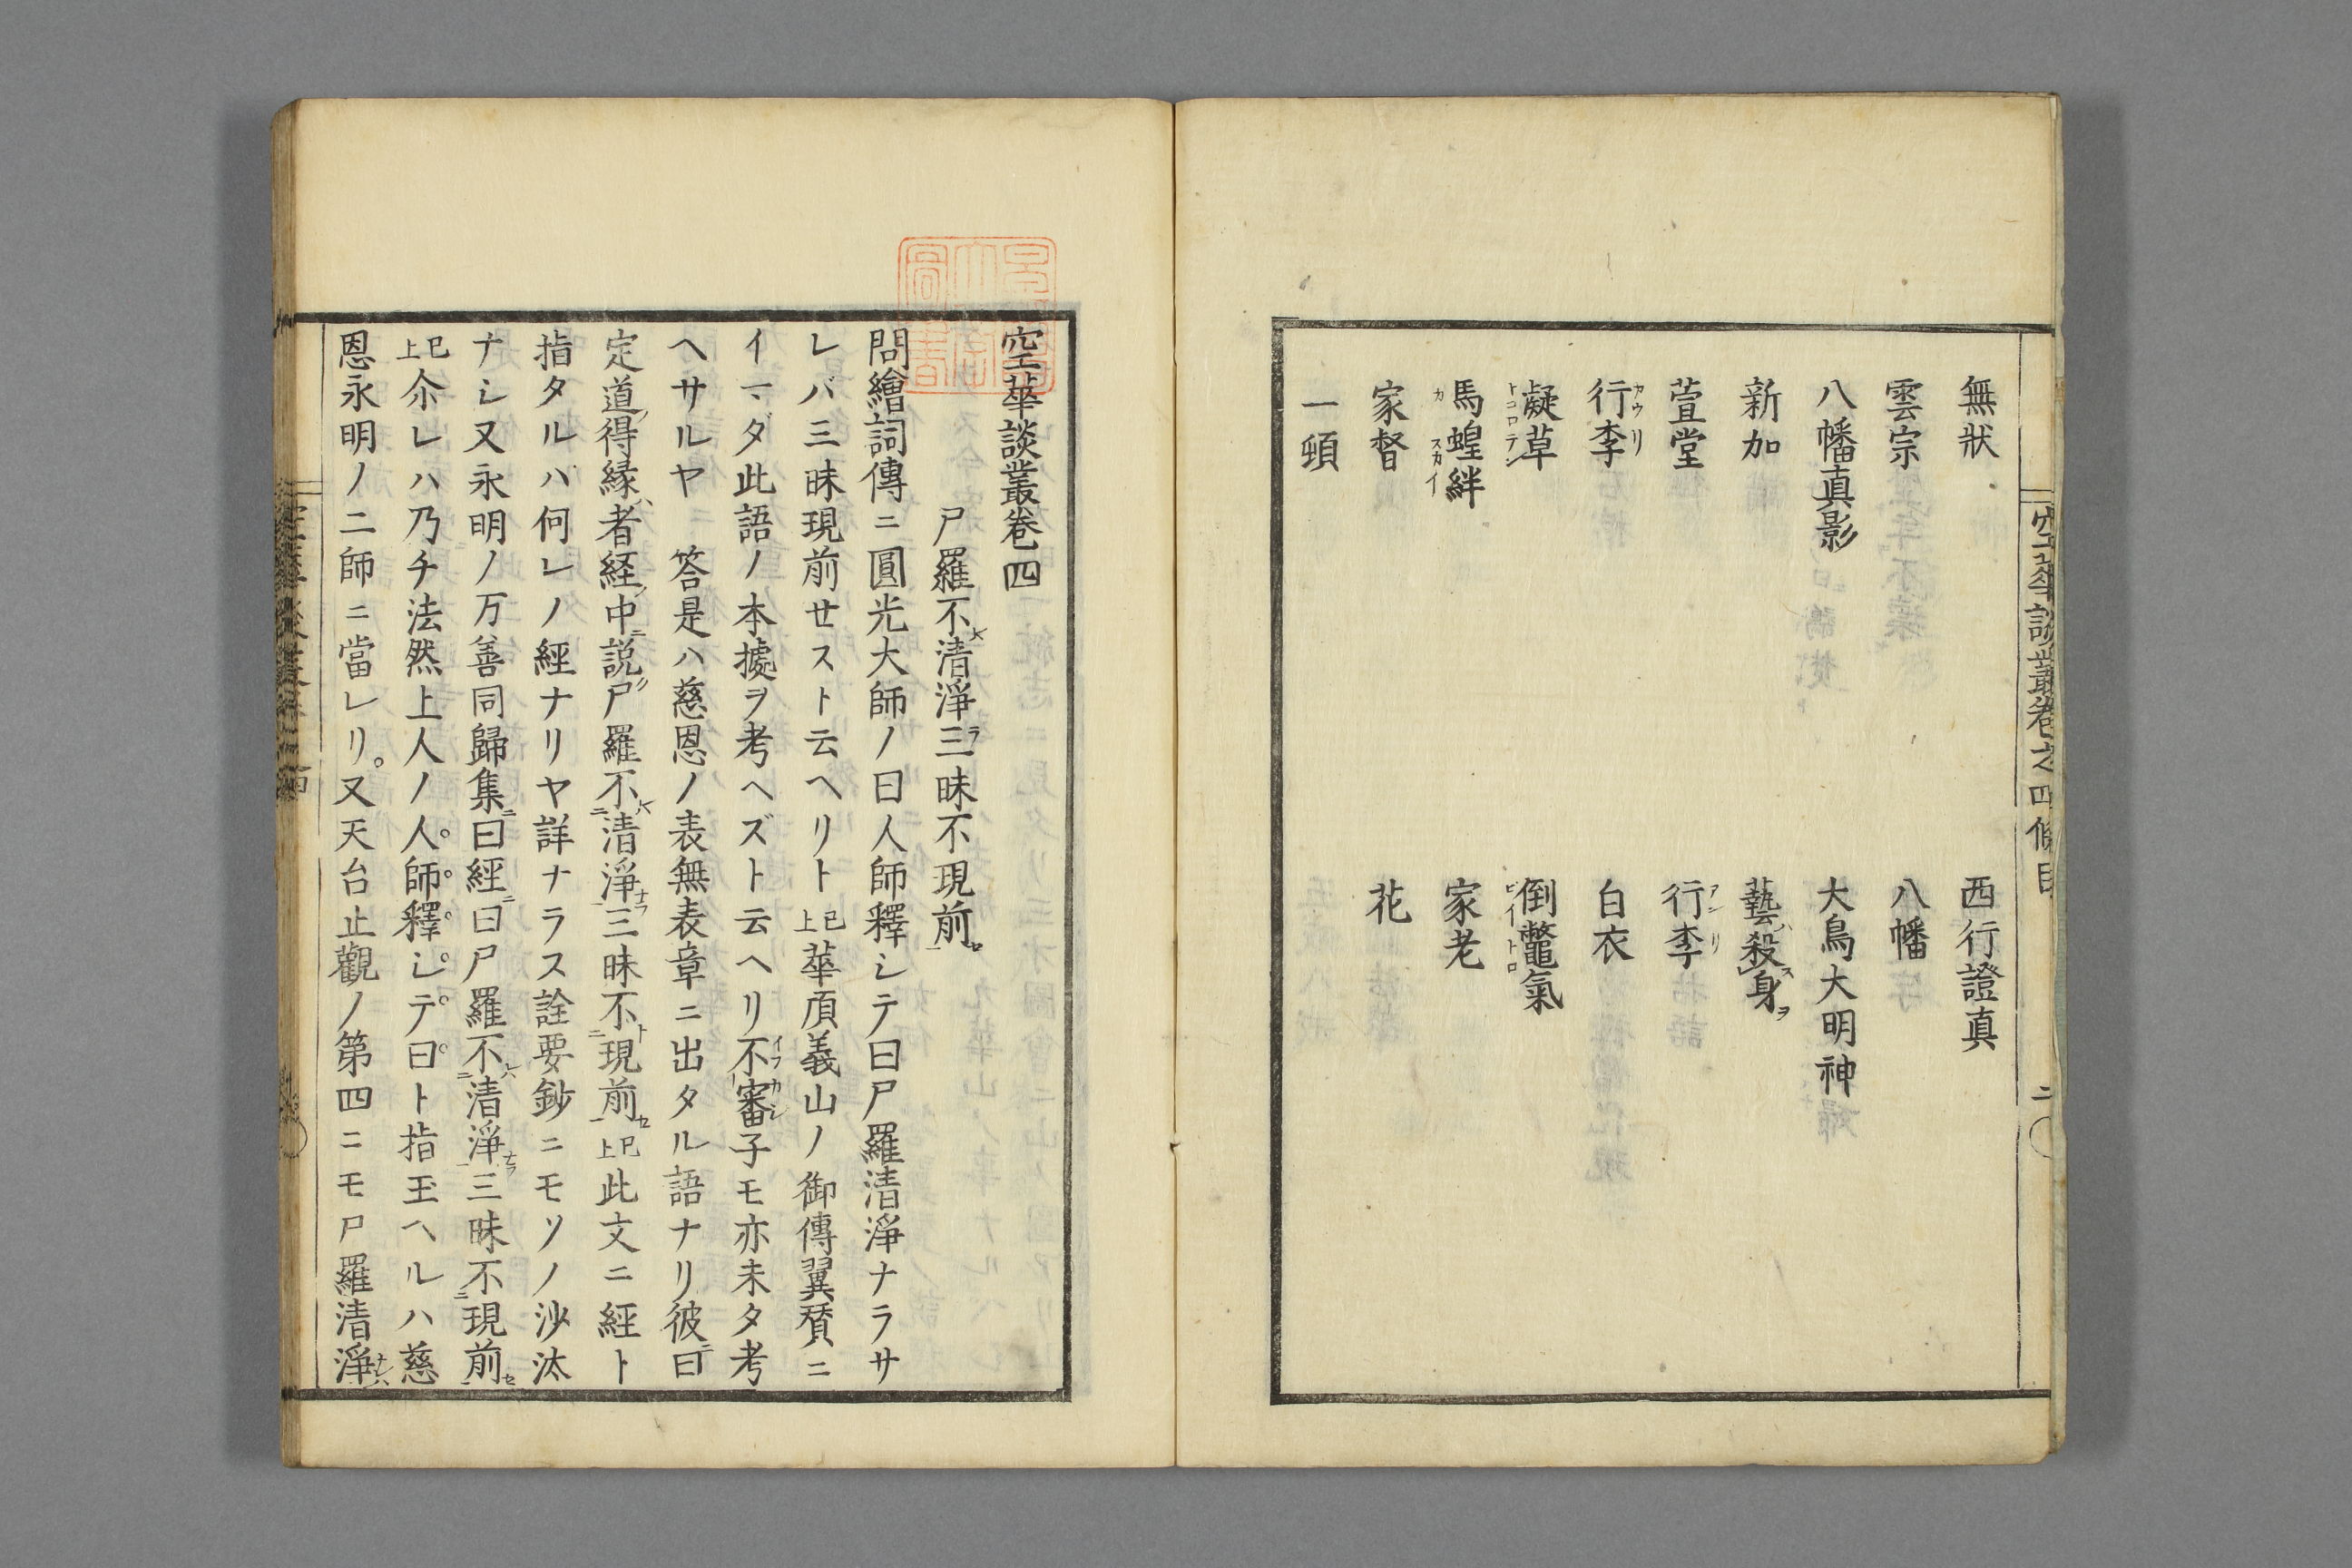 空華談叢卷之四條目 二
無狀 西行證真
雲宗 八幡
八幡真影 大鳥大明神
新加 藝殺身
萱堂 行李
行李 白衣
凝草 倒鼈氣
馬蝗絆 家老
家督 花
一頓
空華談叢卷四
尸羅不清淨三昧不現前
問繪詞傳ニ圓光大師ノ曰人師釋シテ曰尸羅清淨ナラサ
レバ三昧現前せスト云ヘリト已上華頂義山ノ御傳翼賛ニ
イマダ此語ノ本據ヲ考ヘズト云ヘリ不審子モ亦未タ考
ヘサルヤ 答是ハ慈恩ノ表無表章ニ出タル語ナリ彼曰
定道得縁者経中説尸羅不清淨三昧不現前已上此文ニ經ト
指タルハ何レノ經ナリヤ詳ナラス詮要鈔ニモソノ沙汰
ナシ又永明ノ万善同歸集曰經曰尸羅不清淨三昧不現前
已上尒レハ乃チ法然上人ノ人師釋シテ曰ト指玉ヘルハ慈
恩永明ノ二師ニ當レリ。又天台止觀ノ第四ニモ尸羅清淨